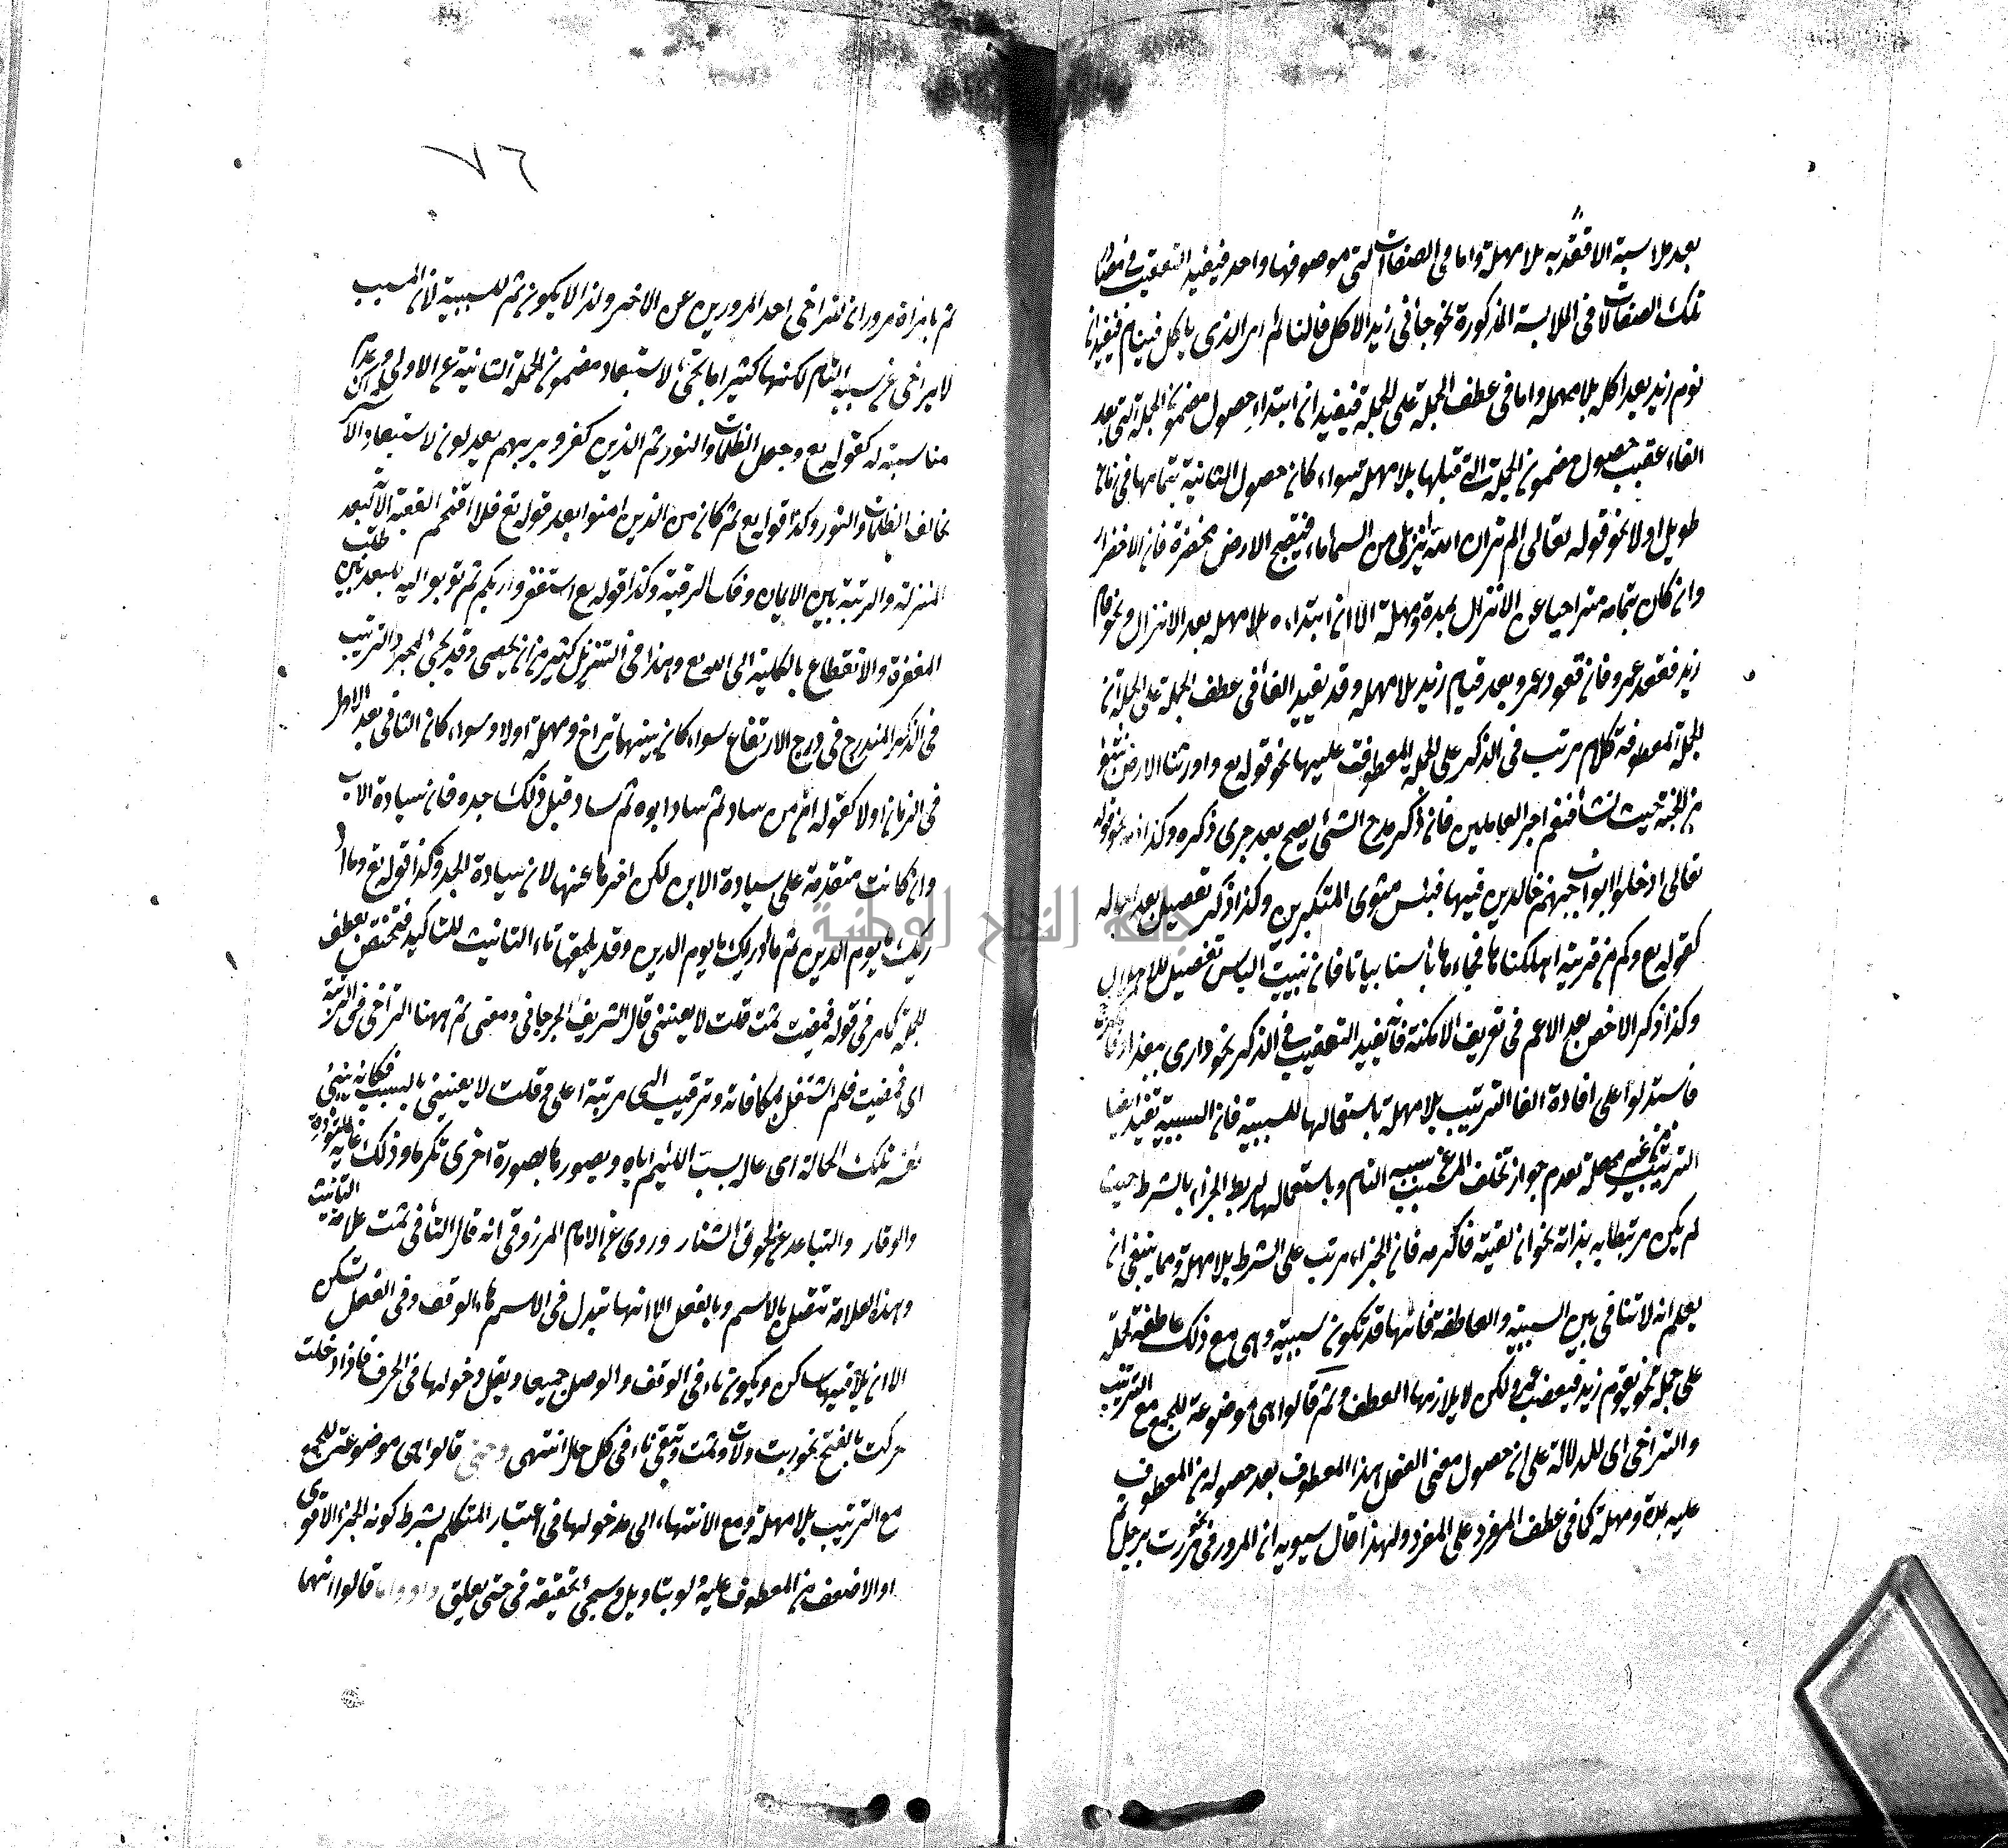 بعد ملابسة الافقديه بلا مهلة واما فى الصفات التى موصوفها واحد فيفيد التعقيب فى مصادر
تلك الصفات لا فى الملابسة المذكورة نحو جاءنى زيد الاكل فالنائم اى الذى ياكل فينام فيفيد ان
نوم زيد بعد اكله بلا مهلة واما فى عطف الجملة على الجملة فيفيد ان ابتداء حصول مضمون الجملة التى بعد
الفاء عقيب حصول مضمون الجملة التى قبلها بلا مهلة سواء كان حصول الثانية بتمامها فى زمان
طويل اولا نحو قوله تعالى الم تر ان الله انزل من السماء ماء فتصبح الارض مخضرة فان الاخضرار
وان كان بتمامه متراخيا عن الانزال بمدة ومهلة الا ان ابتداءه بلا مهلة بعد الانزال ونحو قام
زيد فقعد عمرو فان قعود عمرو بعد قيام زيد بلا مهلة وقد تفيد الفاء فى عطف الجملة على الجملة ان
الجملة المعطوفة كلام مرتب فى الذكر على الجملة المعطوفة عليها نحو قوله تع واورثنا الارض نتبوأ
من الجنة حيث نشاء فنعم اجر العاملين فان ذكر مدح الشئ يصح بعد جرى ذكره وكذا ذمه نحو قوله
تعالى ادخلوا ابواب جهنم خالدين فيها فبئس مثوى المتكبرين وكذا ذكر تفصيل بعد اجماله
كقوله تع وكم من قرية اهلكناها فجاءها بأسنا بياتا فان تبييت الباس تفصيل للاهلاك
وكذا ذكر الاخص بعد الاعم فى تعريف الامكنة فانه يفيد التعقيب فى الذكر نحو دارى ببغداد فالكرخ
فاستدلوا على افادة الفا الترتيب بلا مهلة باستعمالها للسببية فان السببية تفيد ايضا
الترتيب من غير مهلة لعدم جواز تخلف المسبب عن سببه التام وباستعمالها لربط الجزاء بالشرط حيث
لم يكن مرتبطا به بذاته نحو ان لقيته فاكرمه فان الجزاء مرتب على الشرط بلا مهلة ومما ينبغى ان
يعلم انه لا تنافى بين السببية والعاطفة فانها قد تكون سببية وهى مع ذلك عاطفة لجملة
على جملة نحو يقوم زيد فيغضب عمرو لكن لا يلازمها العطف وثم قالوا هى موضوعة للجمع مع الترتيب
والتراخى اى للدلالة على ان حصول معنى الفعل لهذا المعطوف بعد حصوله من المعطوف
عليه بمدة ومهلة كما فى عطف المفرد على المفرد ولهذا قال سيبويه ان المرور فى نحو مررت برجل ثم
٧٦
ثم بامرأة مروران لتراخى احد المرورين عن الاخر ولذا لا يكون ثم للسببية لان المسبب
لا يتراخى عن سببه التام لكنها كثيرا ما تجئ لاستبعاد مضمون الجملة الثانية عن الاولى وعدم
مناسبته له كقوله تع وجعل الظلمات والنور ثم الذين كفروا بربهم يعدلون لاستبعاد الاشراك
بخالق الظلمات والنور وكذا قوله تع ثم كان من الذين امنوا بعد قوله تع فلا اقتحم العقبة الآية لبعد
المنزلة والرتبة بين الايمان وفك الرقبة وكذا قوله تع استغفروا ربكم ثم توبوا اليه للبعد بين طلب
المغفرة والانقطاع بالكلية الى الله تع وهذا فى التنزيل كثير من ان يحصى وقد تجئ لمجرد الترتيب
فى الذكر المندرج فى درج الارتقاع سواء كان بينهما تراخ ومهلة اولا وسواء كان الثانى بعد الاول
فى الزمان اولا كقوله ان من ساد ثم ساد ابوه ثم ساد قبل ذلك جده فان سيادة الاب
وان كانت متقدمة على سيادة الابن لكن اخرها عنها لان سيادة الجد وكذا قوله تع وما ادر
ريك ما يوم الدين ثم ما ادريك ما يوم الدين وقد يلحقها تاء التانيث للتاكيد فتختص بعطف
الجملة كما مر فى قوله فمضيت ثمت قلت لا يعنينى قال الشريف الجرجانى ومعنى ثم ههنا التراخى فى الرتبة
اى فمضيت فلم اشتغل بمكافاته وترقيت الى مرتبة اعلى وقلت لا يعنينى بالسبب فكانه ينبئ
نفسه تلك الحالة اى حال سب اللئيم اياه ويصورها بصورة اخرى تكرما وذلك غاية المروة
والوقار والتباعد عن لحوق الشنار وروى عن الامام المرزوقى انه قال التاء فى ثمت علامة التانيث
وهذه العلامة تتصل بالاسم وبالفعل الا انها تبدل فى الاسم هاء الوقف وفى الفعل تسكن
الا ان يلاقيها ساكن ويكون تاء فى الوقف والوصل جميعا ويقل دخولها فى الحرف فاذا دخلت
حركت بالفتح نحو ربت ولات وثمت وتبقى تاء فى كل حال انتهى وحتى قالوا هى موضوعة للجمع
مع الترتيب بلا مهلة ومع الانتهاء الى مدخولها فى اعتبار المتكلم بشرط كونه الجزء الاقوى
او الاضعف من المعطوف عليه ولو بتاويل وسيجئ تحقيقه فى حتى يعليق واو واما قالوا انهما
جامعة النجاح الوطنية